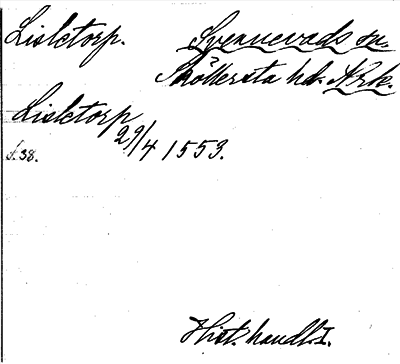 Lisletorp. Svennevads sn.
Sköllersta hd. Nrk.
Lisletorp
29/4 1553.
s. 38.
Hist. handl. I.